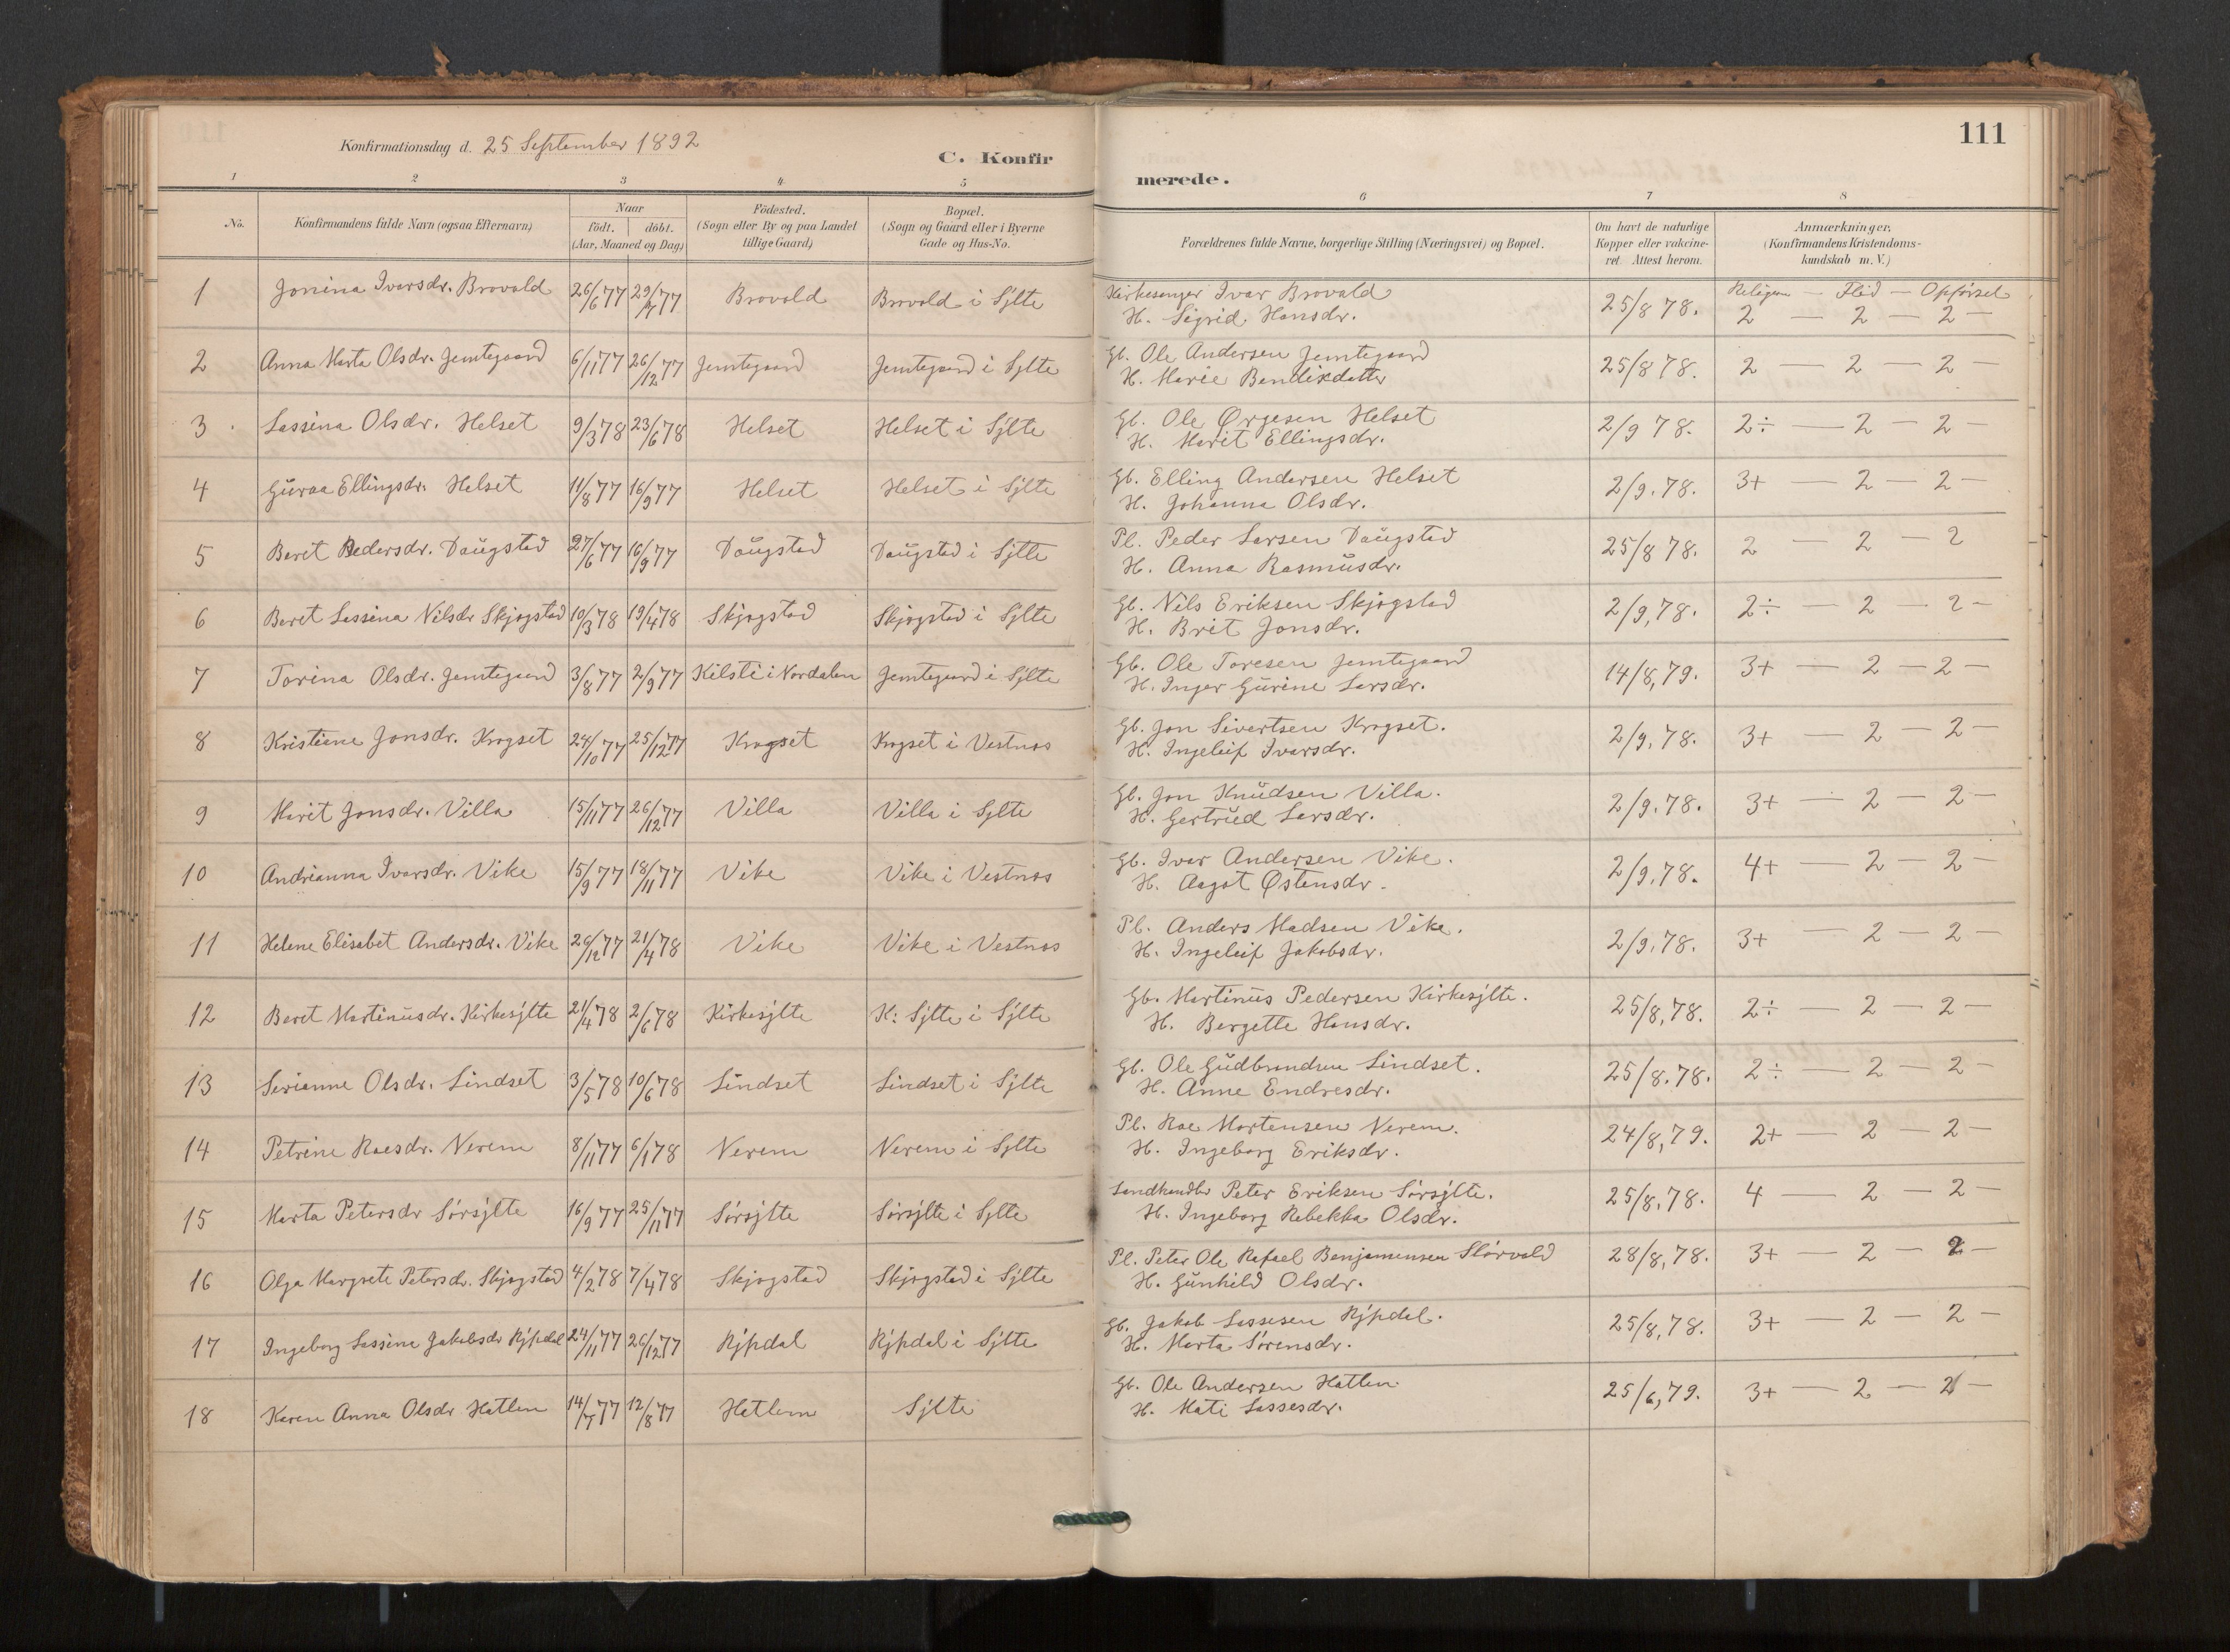 Konfirmationsdag d. 25 September 1892
C. Konfirmerede.
111
1 2 3 4 5 6 7 8
No. Konfirmandens fulde Navn (ogsaa Efternavn) Naar födt. döbt. (Aar, Maaned og Dag) Födested. (Sogn eller By og paa Landet tillige Gaard) Bopæl. (Sogn og Gaard eller i Byerne Gade og Hus-No. Forældrenes fulde Navne, borgerlige Stilling (Næringsvei) og Bopæl. Om havt de naturlige Kopper eller vakcineret. Attest herom. Anmærkninger. (Konfirmandens Kristendomskundskab m. V.)
Religion — Flid — Opførsel
1 Jonina Ivarsdr. Brovold 26/6 77 29/7 77 Brovold Brovold i Sylte Kirkesanger Ivar Brovold 25/8 78. 2 — 2 — 2 —
H. Sigrid Hansdr.
2 Anna Marta Olsdr. Jemtegaard 6/11 77 26/12 77 Jemtegaard Jemtegaard i Sylte Gb. Ole Andersen Jemtegaard 25/8 78. 2 — 2 — 2 —
H. Marie Bendixdatter
3 Lassina Olsdr. Helset 9/3 78 23/6 78 Helset Helset i Sylte Gb. Ole Ørjesen Helset 2/9 78. 2÷ — 2 — 2 —
H. Marit Ellingsdr.
4 Guroa Ellingsdr. Helset 11/8 77 16/9 77 Helset Helset i Sylte Gb. Elling Andersen Helset 2/9. 78. 3+ — 2 — 2 —
H. Johanna Olsdr.
5 Beret Pedersdr. Daugstad 27/6 77 16/9 77 Daugstad Daugstad i Sylte Pl. Peder Larsen Daugstad 25/8 78. 2 — 2 — 2
H. Anna Rasmusdr.
6 Beret Lassina Nilsdr Skjøgstad 10/3 78 19/4 78 Skjøgstad Skjøgstad i Sylte Gb. Nils Eriksen Skjøgstad 2/9, 78. 2÷ — 2 — 2 —
H. Brit Jonsdr.
7 Torina Olsdr. Jemtegaard 3/8 77 2/9 77 Kilsti i Nordalen Jemtegaard i Sylte Gb. Ole Toresen Jemtegaard 14/8, 79. 3+ — 2 — 2 —
H. Inger Gurine Larsdr.
8 Kristiene Jonsdr. Krogset 24/10 77 25/12 77 Krogset Krogset i Vestnæs Gb. Jon Sivertsen Krogset. 2/9. 78. 3+ — 2 — 2 —
H. Ingeleif Ivarsdr.
9 Marit Jonsdr. Villa 15/11 77 26/12 77 Villa Villa i Sylte Gb. Jon Knudsen Villa. 2/9. 78. 3+ — 2 — 2 —
H. Gertrud Larsdr.
10 Andrianna Ivarsdr. Vike 15/9 77 18/11 77 Vike Vike i Vestnæs Gb. Ivar Andersen Vike. 2/9, 78. 4+ — 2 — 2 —
H. Aagot Østensdr.
11 Helene Elisabet Andersdr. Vike 26/12 77 21/4 78 Vike Vike i Vestnæs Pl. Anders Madsen Vike. 2/9. 78. 3+ — 2 — 2 —
H. Ingeleif Jakobsdr.
12 Beret Martinusdr. Kirkesylte 21/4 78 2/6 78 Kirkesylte K: Sylte i Sylte Gb. Martinus Pedersen Kirkesylte. 25/8, 78. 2÷ — 2 — 2 —
H. Bergette Hansdr.
13 Serianne Olsdr. Lindset 3/5 78 10/6 78 Lindset Lindset i Sylte Gb. Ole Gudbrandsen Lindset. 25/8. 78. 2÷ — 2 — 2 —
H. Anne Endresdr.
14 Petrine Roesdr. Nerem 8/11 77 6/1 78 Nerem Nerem i Sylte Pl. Roe Mortensen Nerem. 24/8, 79. 2+ — 2 — 2 —
H. Ingeborg Eriksdr.
15 Marta Petersdr Sørsylte 16/9 77 25/11 77 Sørsylte Sørsylte i Sylte Landhandler Peter Eriksen Sørsylte. 25/8, 78. 4 — 2 — 2 —
H. Ingeborg Rebekka Olsdr.
16 Olga Margrete Petersdr. Skjøgstad 4/2 78 7/4 78 Skjøgstad Skjøgstad i Sylte Pl. Peter Ole Rafael Benjaminsen 28/8, 78. 3+ — 2 — 2 —
H. Gunhild Olsdr.
17 Ingeborg Lassina Jakobsdr Rypdal 24/11 77 26/12 77 Rypdal Rypdal i Sylte Gb. Jakob Lassesen Rypdal. 25/8, 78. 3+ — 2 — 2 —
H. Marta Sørensdr.
18 Karen Anna Olsdr Hatlen 14/7 77 12/8 77 Hatlem Sylte Gb. Ole Andersen Hatlen 25/6, 79. 3+ — 2 — 2 —
H. Mati Lassesdr.